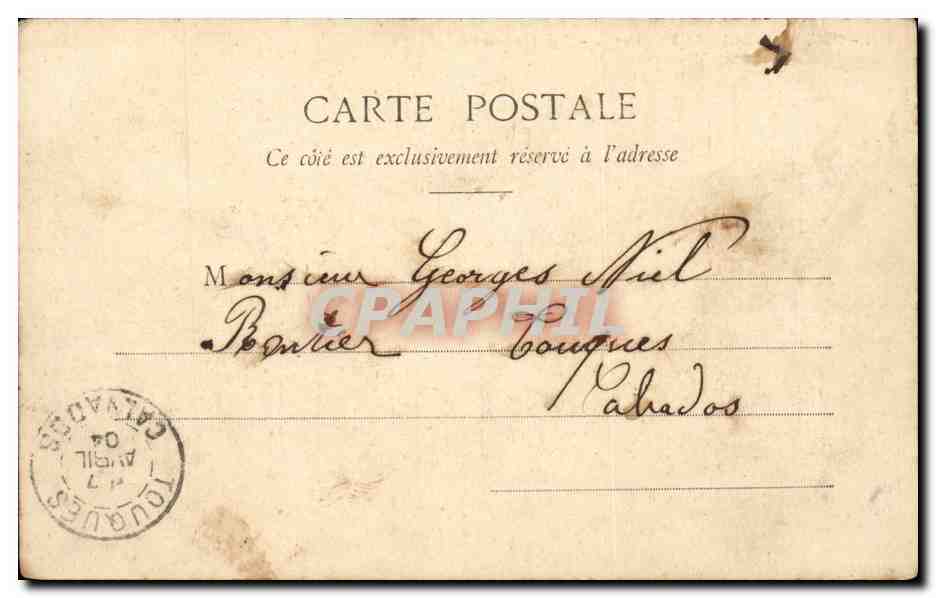 CARTE POSTALE
Ce côté est exclusivement réservé à l'adresse
Monsieur Georges Niel
CPAPHIL
Rentier Touques
Calvados
TOUQUES
7
AVRIL
04
CALVADOS